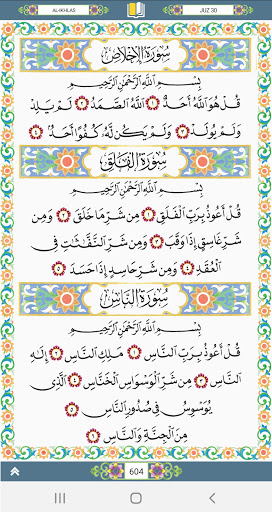 AL-IKHLAS JUZ 30
سُورَةُ الإِخْلَاصِ
بِسْمِ ٱللَّهِ ٱلرَّحْمَٰنِ ٱلرَّحِيمِ
قُلْ هُوَ ٱللَّهُ أَحَدٌ ١ ٱللَّهُ ٱلصَّمَدُ ٢ لَمْ يَلِدْ
وَلَمْ يُولَدْ ٣ وَلَمْ يَكُن لَّهُۥ كُفُوًا أَحَدٌۢ ٤
سُورَةُ الفَلَقِ
بِسْمِ ٱللَّهِ ٱلرَّحْمَٰنِ ٱلرَّحِيمِ
قُلْ أَعُوذُ بِرَبِّ ٱلْفَلَقِ ١ مِن شَرِّ مَا خَلَقَ ٢ وَمِن
شَرِّ غَاسِقٍ إِذَا وَقَبَ ٣ وَمِن شَرِّ ٱلنَّفَّٰثَٰتِ فِى
ٱلْعُقَدِ ٤ وَمِن شَرِّ حَاسِدٍ إِذَا حَسَدَ ٥
سُورَةُ النَّاسِ
بِسْمِ ٱللَّهِ ٱلرَّحْمَٰنِ ٱلرَّحِيمِ
قُلْ أَعُوذُ بِرَبِّ ٱلنَّاسِ ١ مَلِكِ ٱلنَّاسِ ٢ إِلَٰهِ
ٱلنَّاسِ ٣ مِن شَرِّ ٱلْوَسْوَاسِ ٱلْخَنَّاسِ ٤ ٱلَّذِى
يُوَسْوِسُ فِى صُدُورِ ٱلنَّاسِ ٥
مِنَ ٱلْجِنَّةِ وَٱلنَّاسِ ٦
604